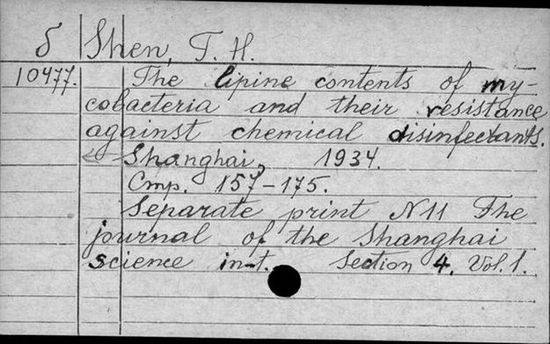 δ Shen, T. H.
10477. The lipine contents of my-
cobacteria and their resistance
against chemical disinfectants.
Shanghai, 1934.
Cmp. 157-175.
Separate print N 11 The
journal of the Shanghai
science in-t. Section 4. Vol. 1.